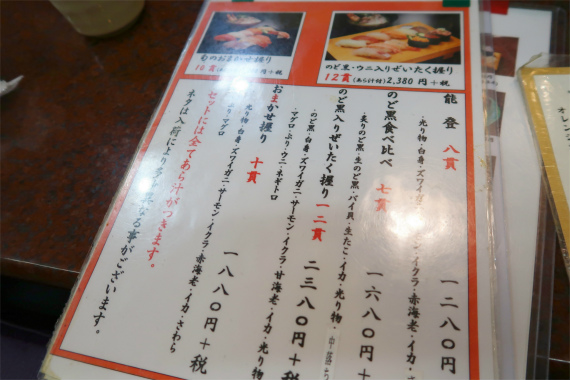 旬のおまかせ握り
10貫
円+税
のど黒・ウニ入りぜいたく握り
12貫(あら汁付)2,380円+税
能登 八貫
・光り物・白身・ズワイガニ
・イクラ・赤海老・イカ・さ
一二八〇円
のど黒食べ比べ 七貫
・炙りのど黒・生のど黒・バイ貝・生たこ・イカ・光り物・
一六八〇円+
のど黒入りぜいたく握り 一二貫
・のど黒・白身・ズワイガニ・サーモン・イクラ・甘海老・イカ・光り物
・マグロ・ぶり・ウニ・ネギトロ
二三八〇円+税
おまかせ握り 十貫
光り物・白身・ズワイガニ・サーモン・イクラ・赤海老・イカ・さわら
ぶり・マグロ
一八八〇円+税
セットには全てあら汁がつきます。
ネタは入荷により多少異なる事がございます。
オレン